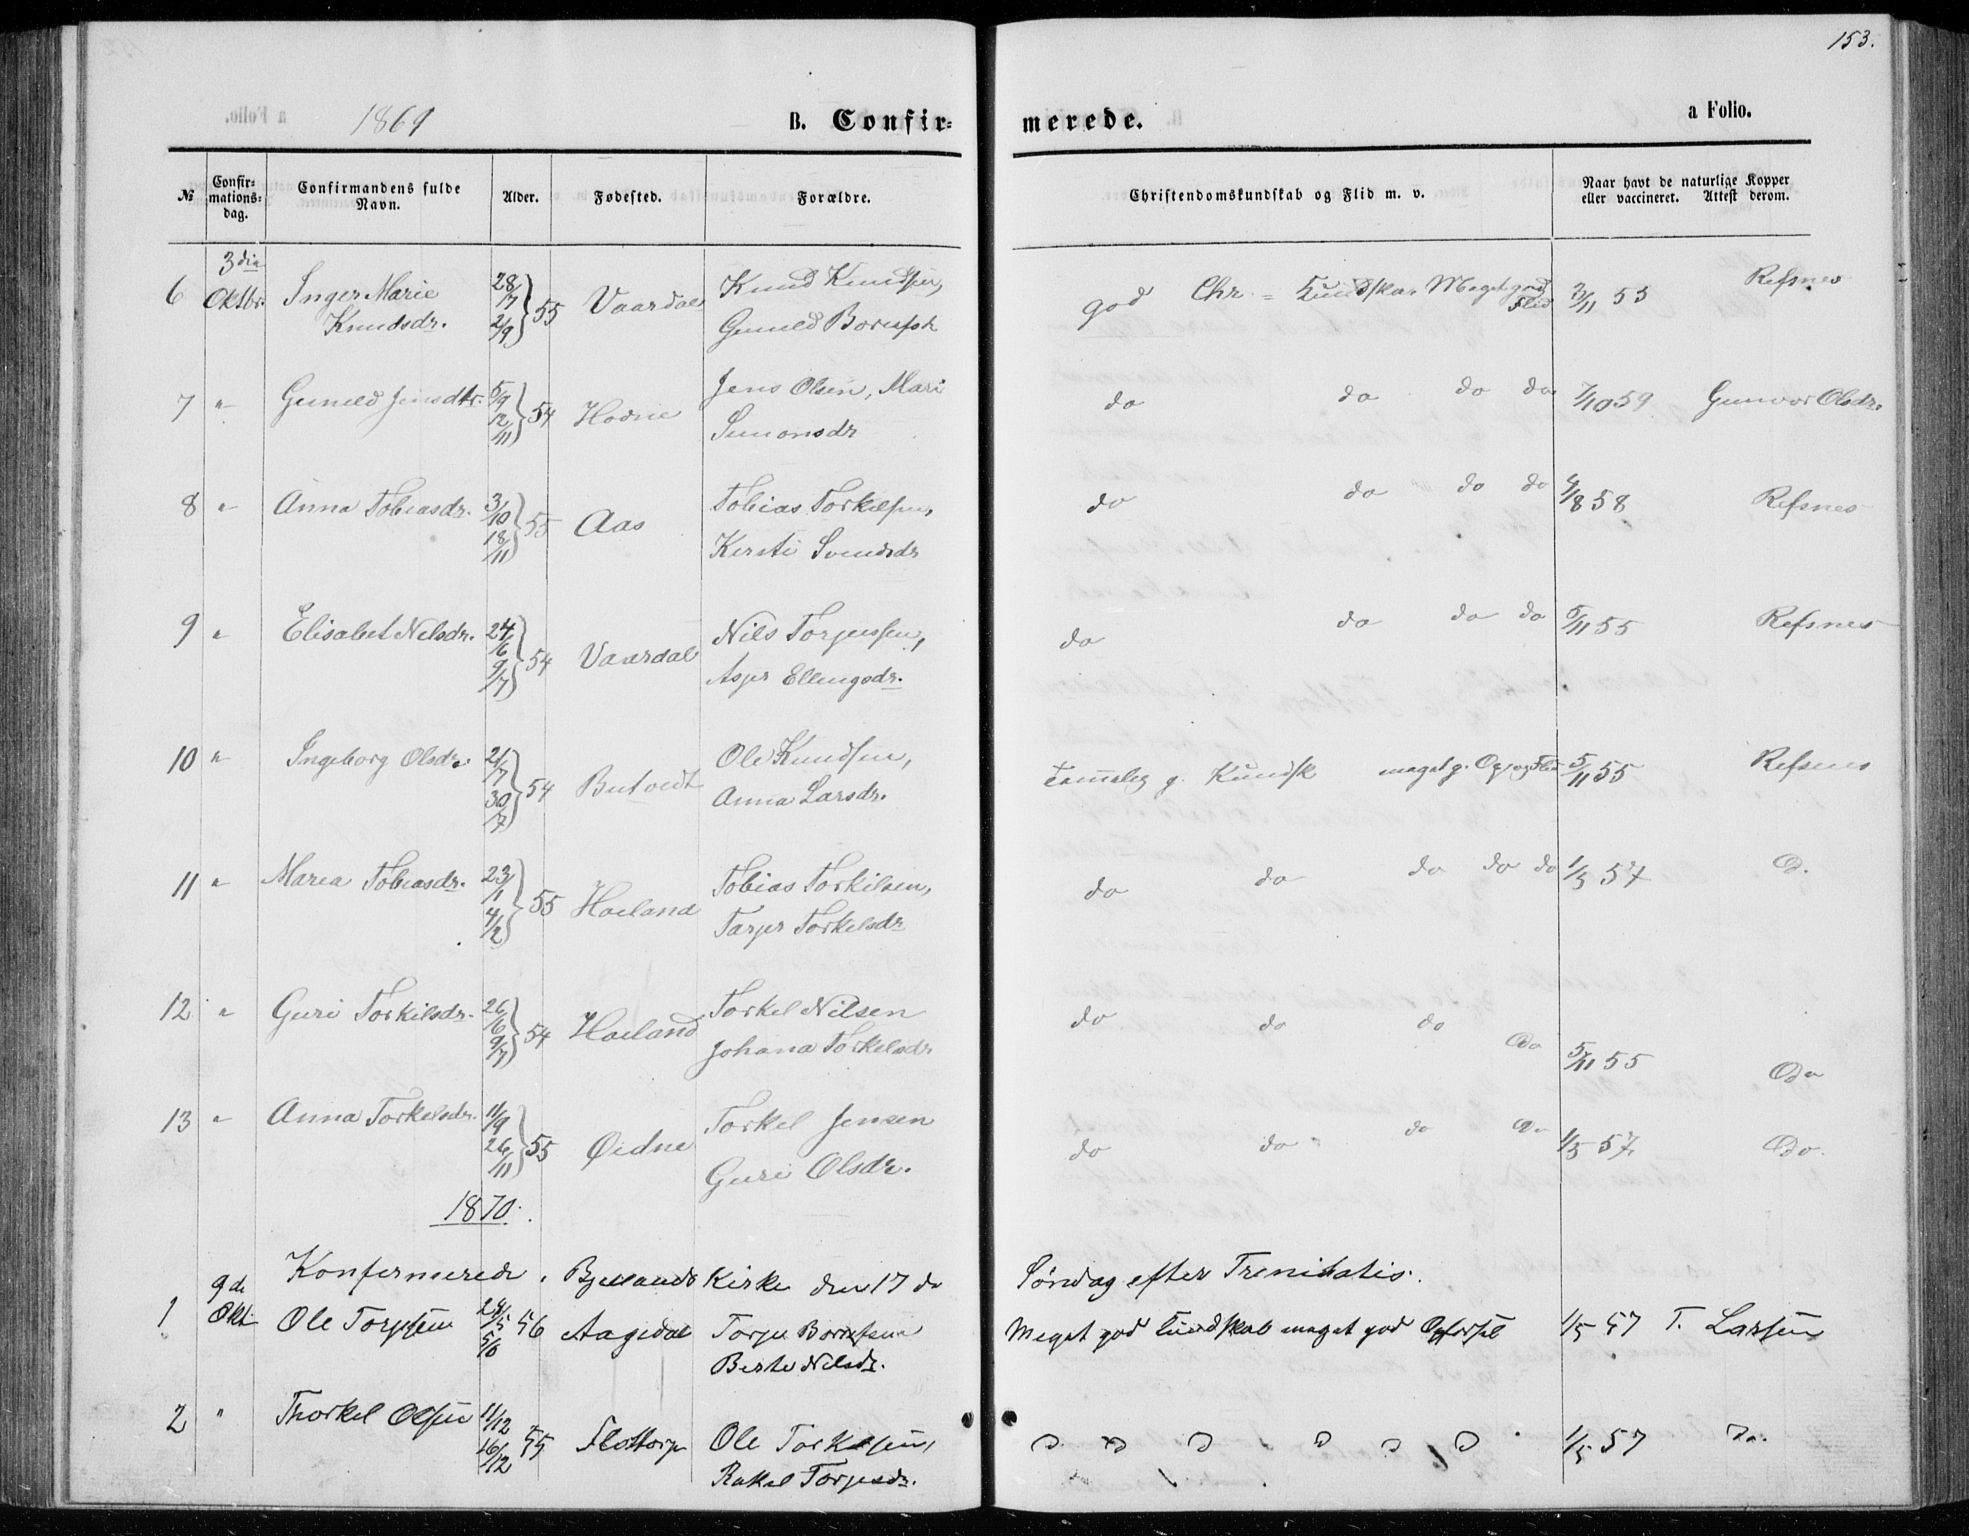 153.
1869 B. Confir= merede. a Folio.
№ Confir=mations=dag. Confirmandens fulde Navn. Alder. Fødested. Forældre. Christendomskundskab og Flid m. v. Naar havt de naturlige Kopper eller vaccineret. Attest derom.
6 3die Oktbr. Inger Marie Knudsdr. 28/7 2/9 } 55 Vaardal Knud Knudsen, god Chr = Kundskab Meget god Flid 3/11 55 Refsnes
Gunild
7 " Gunild Jensdtr. 5/9 12/11 } 54 Hodne Jens Olsen, Mari Simonsdr do do do do 7/10 59 Gunvor Olsdr.
8 " Anna Tobiasdr. 3/10 18/11 } 55 Aas Tobias Torkelsen, Kersti Svendsdr do do do do 4/8 58 Refsnes
9 " Elisabet Nilsdr. 24/6 9/7 } 54 Vaardal Nils Torjussen, Asjer Ellingsdr. do do do do 5/11 55 Refsnes
10 " Ingeborg Olsdr. 21/7 30/7 } 54 Butvedt Ole Knudsen, Anna Larsdr. Temelig g. Kundsk meget g. Opf og Flid 5/11 55 Refsnes
11 " Maria Tobiasdr. 23/1 4/2 } 55 Høiland Tobias Torkilsen, Tarjer Torkelsdr do do do do do 1/5 57 D.
12 " Guri Torkilsdr. 26/6 9/7 } 54 Høiland Torkel Nilsen Johana Torkelsdr do do do Do 5/11 55 Do
13 " Anna Torkelsdr. 11/9 26/11 } 55 Øidne Torkel Jensen Guri Olsdr. do do do Do 1/5 57. Do.
1870.
Konfirmerede i Bjellands Kirke den 17 de Søndag efter Trenitatis.
1 9de Okt Ole Torjusen 24/5 5/6 56 Aagedal Torju Berte Nilsdr. Meget god Kundskab meget god Opførsel 1/5 57 T. Larsen
2 " Thorkel Olsen 11/12 16/12 55 Flottorp Ole Torkelsen, Rakel Torjusdr. D D D D D D 1/5 57 Do.